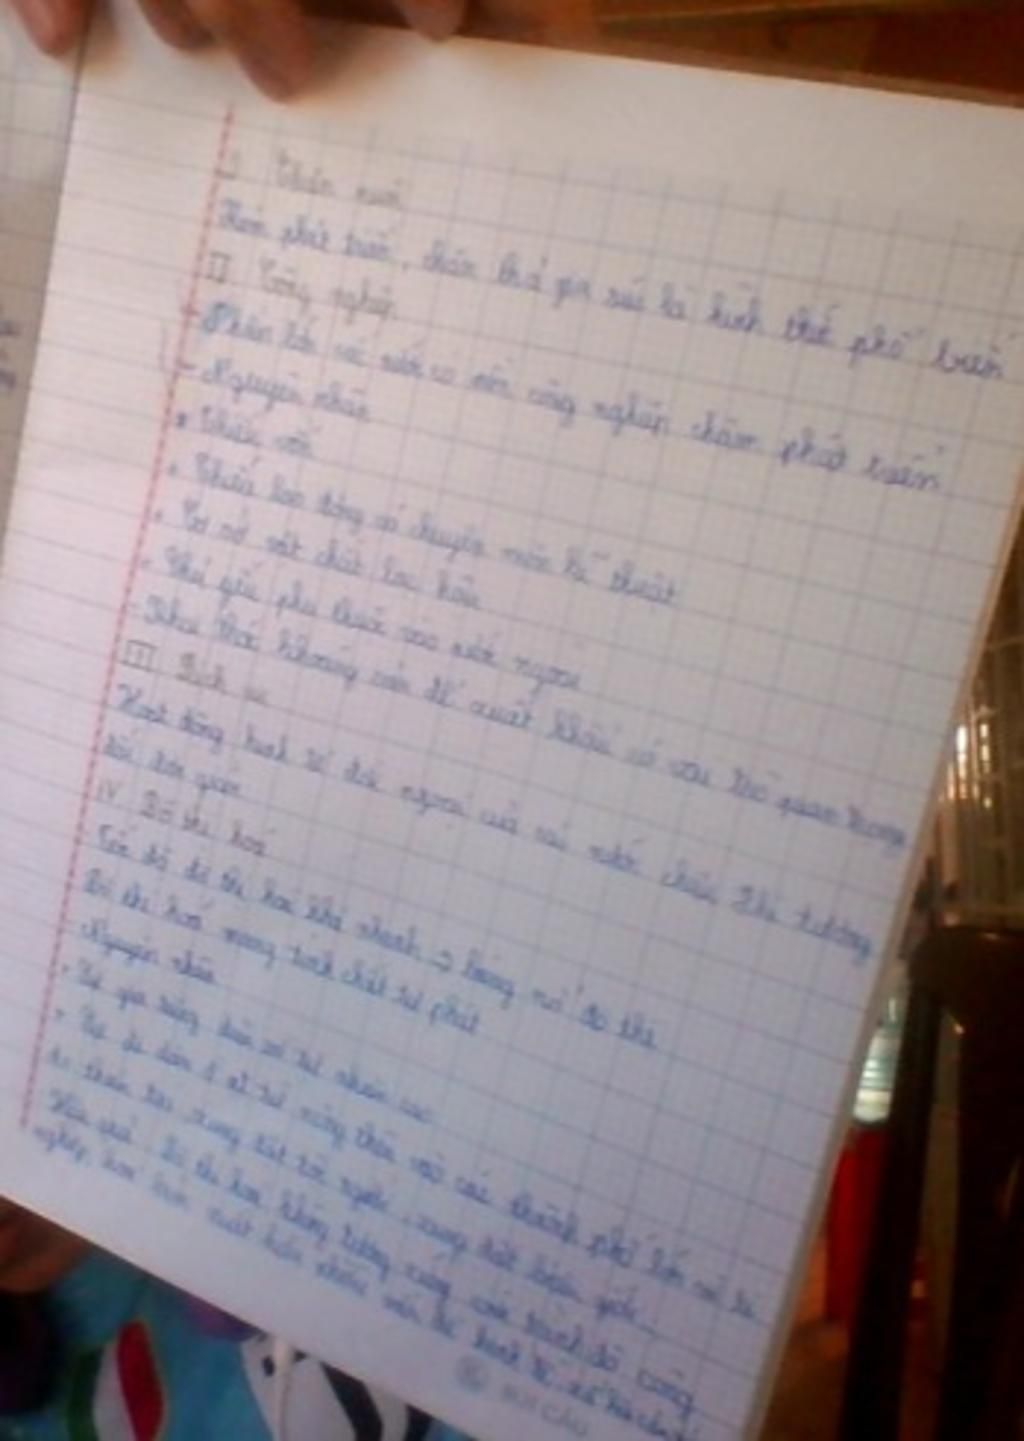 Chăn nuôi
Kém phát triển, chăn thả gia súc là hình thức phổ biến
II Công nghiệp
Phần lớn các nước có nền công nghiệp chậm phát triển
- Nguyên nhân
+ Thiếu vốn
+ Thiếu lao động có chuyên môn kĩ thuật
+ Cơ sở vật chất lạc hậu
phụ thuộc vào nước ngoài
- Khai thác khoáng sản để xuất khẩu có vai trò quan trọng
III Dịch vụ
Hoạt động kinh tế đối ngoại của các nước châu Phi tương
đối đơn giản
IV Đô thị hoá
Tốc độ đô thị hoá khá nhanh → bùng nổ đô thị
Đô thị hoá mang tính chất tự phát
Nguyên nhân
+ Sự gia tăng dân số tự nhiên cao
+ Sự di dân ồ ạt từ nông thôn vào các thành phố lớn
do thiên tai, xung đột tộc người, xung đột biên giới
Hậu quả: Đô thị hoá không tương xứng với trình độ công
nghiệp hoá làm xuất hiện nhiều vấn đề kinh tế xã hội
HẢI CÂU